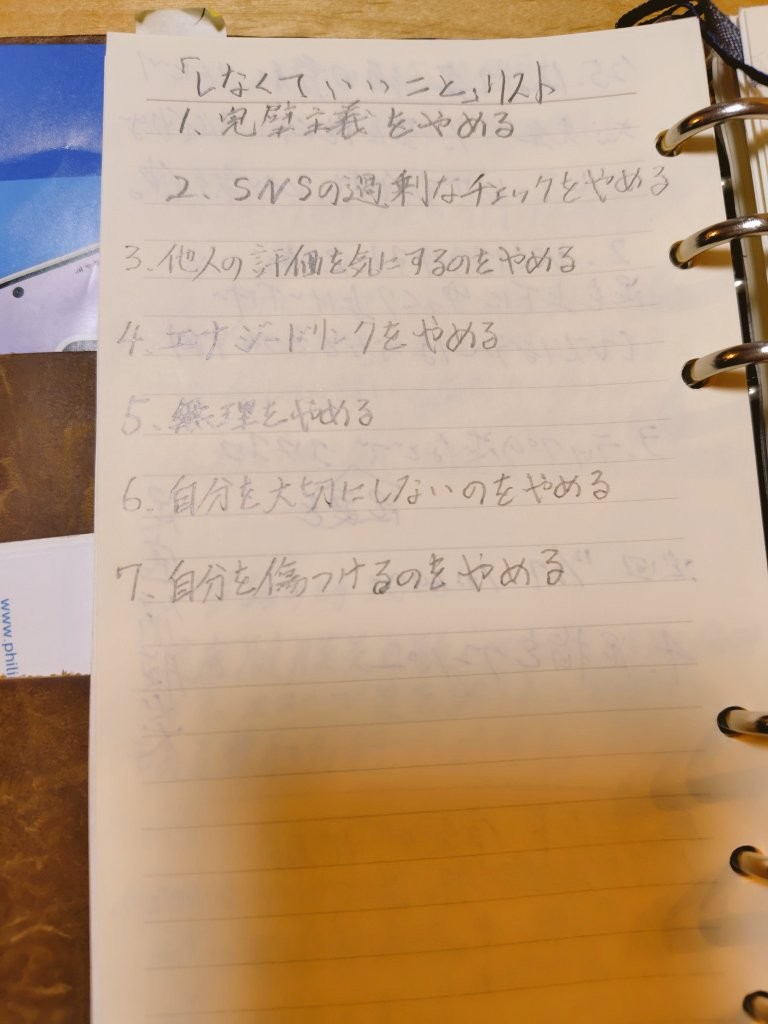 「しなくていいこと」リスト
1、完璧主義をやめる
2、SNSの過剰なチェックをやめる
3、他人の評価を気にするのをやめる
4、エナジードリンクをやめる
5、無理をやめる
6、自分を大切にしないのをやめる
7、自分を傷つけるのをやめる
www.phili